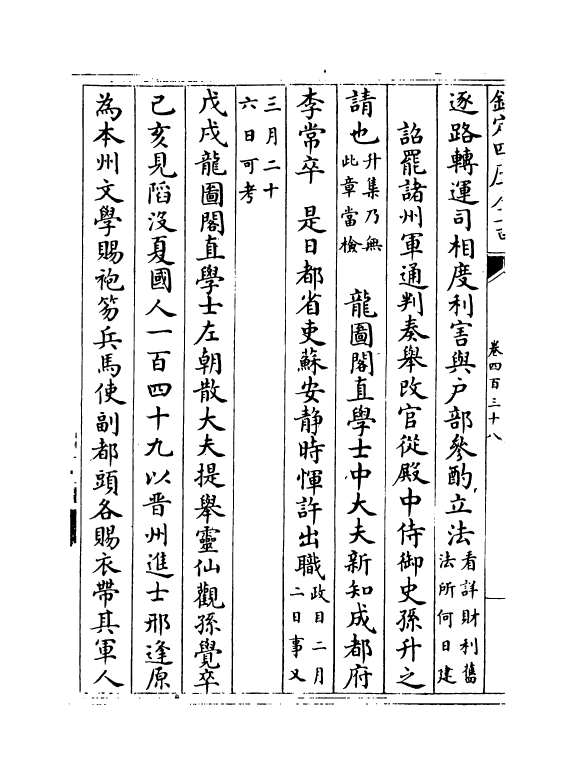 欽定四庫全書
卷四百三十八
逐路轉運司相度利害與戸部參酌立法看詳財利舊
法所何日建
詔罷諸州軍通判奏舉改官從殿中侍御史孫升之
請也升集乃無
此章當檢　龍圖閣直學士中大夫新知成都府
李常卒　是日都省吏蘇安靜時惲許出職政目二月
二日事又
三月二十
六日可考
戊戌龍圖閣直學士左朝散大夫提舉靈仙觀孫覺卒
己亥見䧟沒夏國人一百四十九以晋州進士邢逢原
為本州文學賜袍笏兵馬使副都頭各賜衣帶其軍人